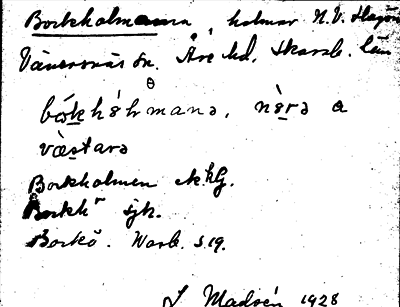 Borkholmarna, holmar N.V. Hagön
Vänersnäs sn. Åse hd. Skarab. län
bórkhòhrmana, nè̱rə a
væ̀starə
Borkholmen ekkG.
Borkhr sjk.
Borkö. Warb. s. 19.
L Madsén 1928